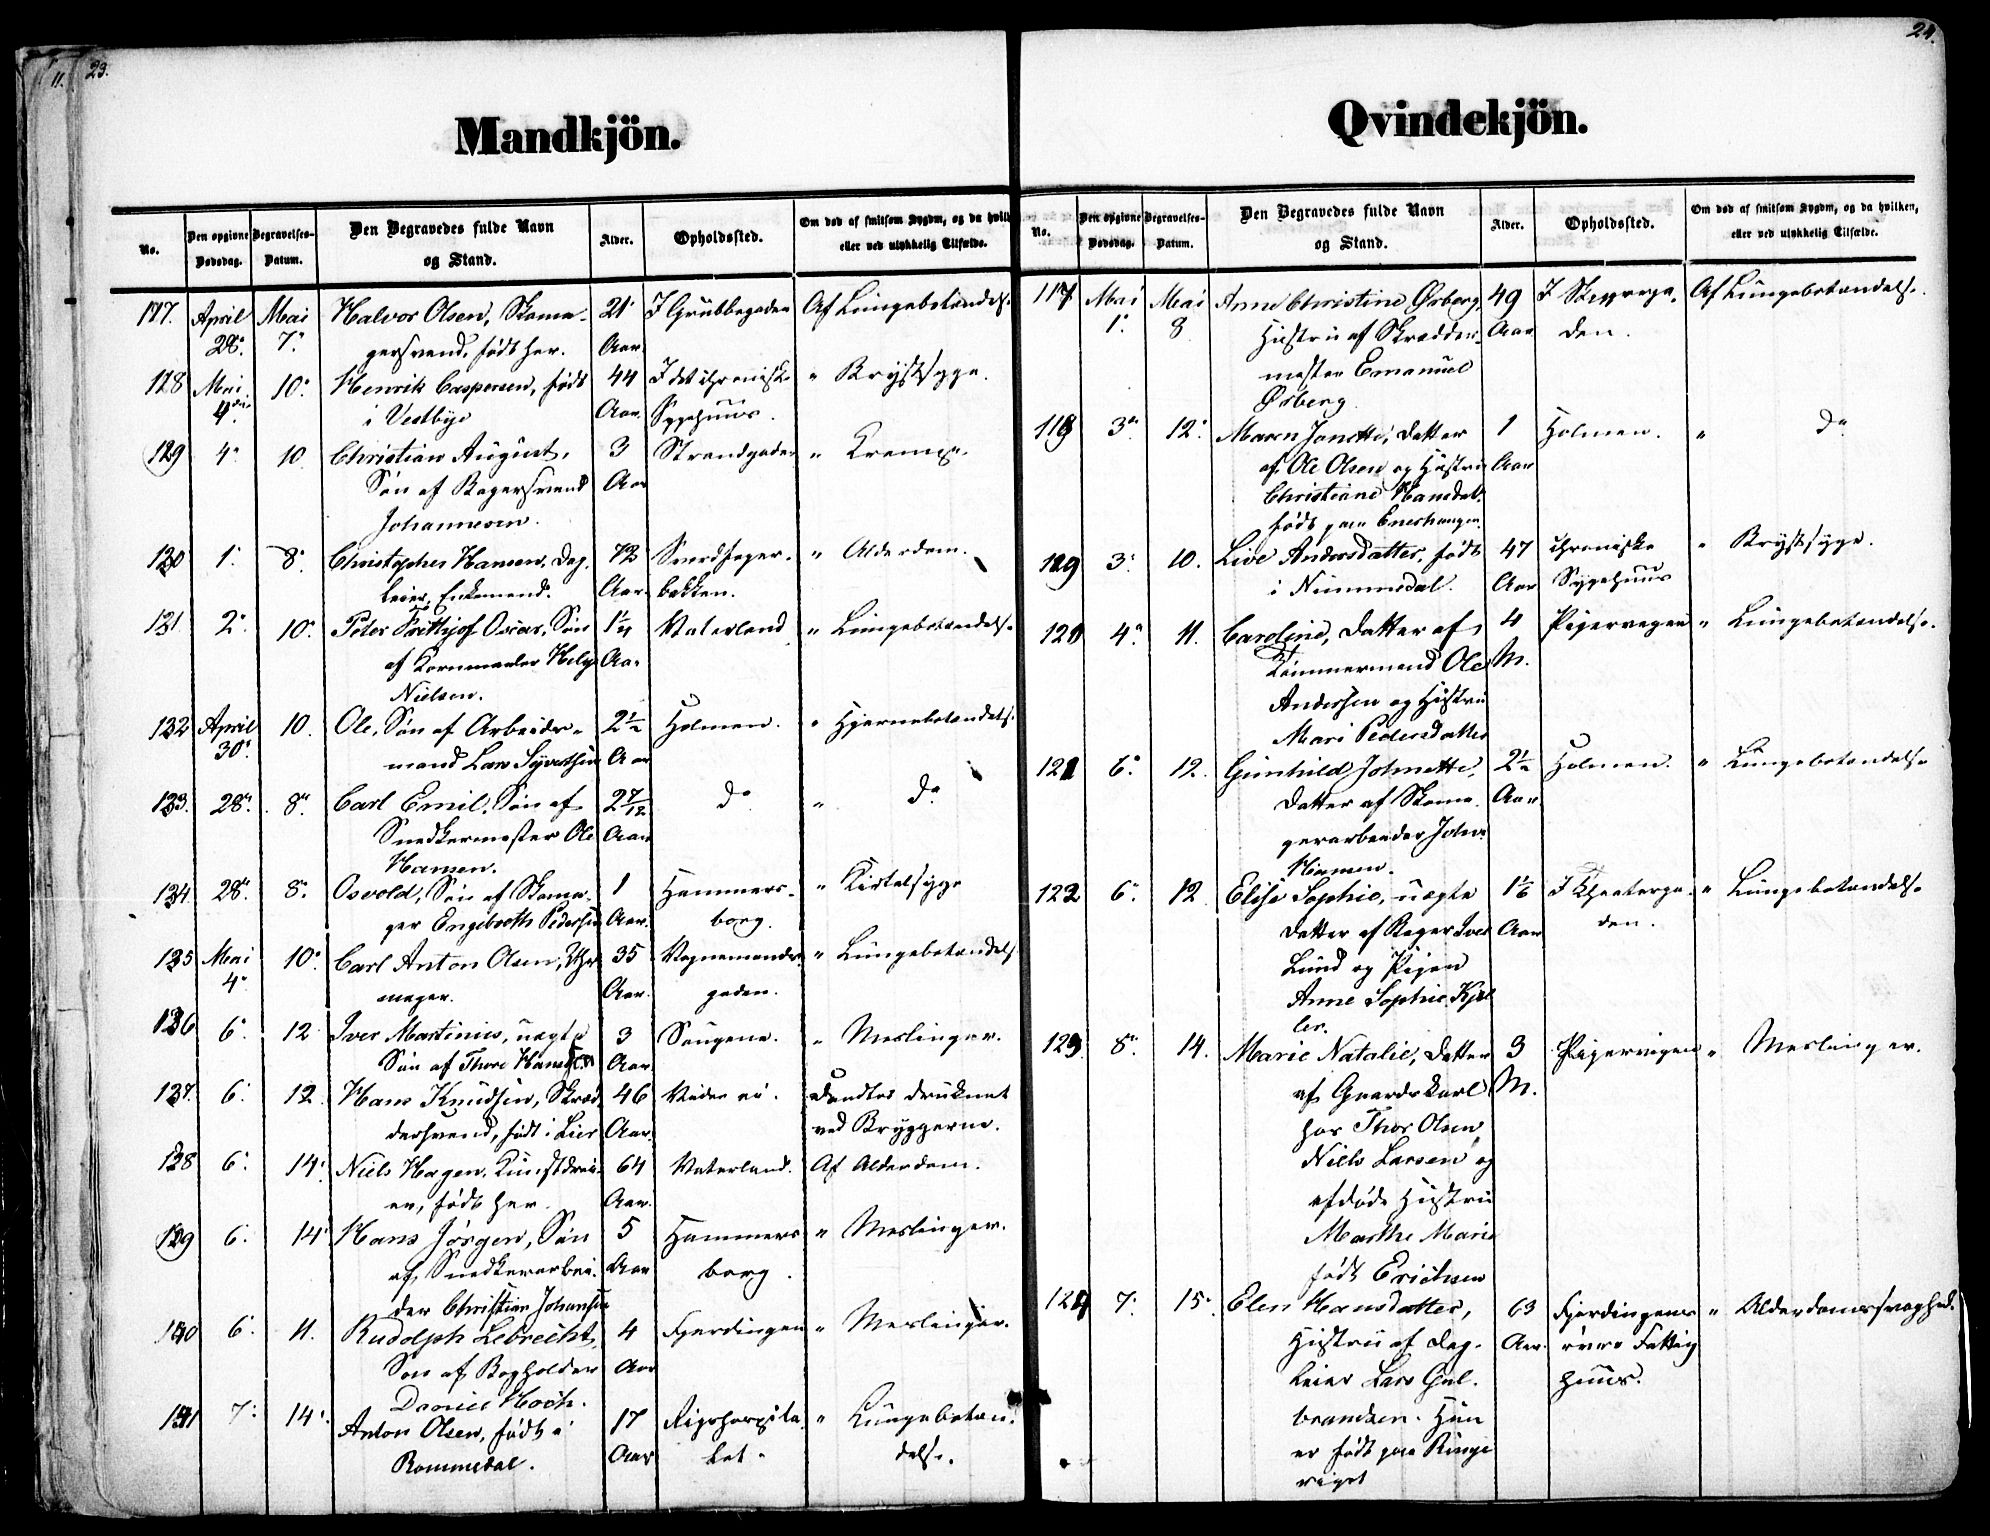 11. 23.
Mandkjön.
No.
Den opgivne Dødsdag.
Begravelses-Datum.
Den Begravedes fulde Navn og Stand.
Alder.
Opholdssted.
Om død af smitsom Sygdom, og da hvilken, eller ved ulykkelig Tilfælde.
127. April Mai Halvor Olsen, Skoma- 21 I Grubbegaden Af Lungebetændelse
28. 7. gersvend, født her. Aar
128 Mai 10. Henrik Caspersen, født 44 I det chroniske " Brystsyge.
4. i Vestbye Aar Sygehuus.
129 4. 10 Christian August, 3 Strandgaden " Krampe.
Søn af Bagersvend Aar
Johannesen.
130 1. 8. Christopher Hansen, Dag- 73 Smedjager- " Alderdom.
leier, Enkemand. Aar. bakken.
131. 2. 10. Peter Frithjof Oscar, Søn 1¼ Vaterland " Lungebetændelse
af Kornmaaler Helge Aar
Nielsen.
132 April 10. Ole, Søn af Arbeids- 2½ Holmen. " Hjernebetændelse
30. mand Lars Syvertsen Aar
133. 28. 8. Carl Emil, Søn af 2 7/12 do " do
Snedkermester Ole Aar
Hansen.
134 28. 8. Osvald, Søn af Skoma- 1 Hammers- " Kirtelsyge
ger Engebreth Pedersen Aar. borg.
135 Mai 10. Carl Anton Olsen, Uhr- 35 Vognmands- " Lungebetændelse
4. mager. Aar. gaden.
136 6. 12 Iver Martinius, uægte 3 Saugene. " Meslinger.
Søn af Thore Hansen Aar
137. 6. 12 Hans Knudsen, Skræd- 46 dødfundet druknet
dersvend, født i Lier Aar. ved Bryggerne.
138 6. 14. Niels Hagen, Kunstdrei- 64 Vaterland. Af Alderdom.
er, født her. Aar.
139 6. 14 Hans Jørgen, Søn 5 Hammers " Meslinger.
af Snedkerarbei- Aar borg.
der Christian Johansen
140 6. 11. Rudolph Lebrecht, 4 Fjerdingen " Meslinger.
Søn af Bogholder Aar
Daniel Koch.
141 7. 14. Anton Olsen, født i 17 Rigshospita- " Lungebetæn-
Rommedal. Aar let. delse.
24.
Qvindekjön.
No.
Den opgivne Dødsdag.
Begravelses-Datum.
Den Begravedes fulde Navn og Stand.
Alder.
Opholdssted.
Om død af smitsom Sygdom, og da hvilken, eller ved ulykkelig Tilfælde.
117 Mai Mai Anne Christine Ørberg, 49 I Skippergа- Af Lungebetændelse.
1. 8 Hustru af Skrædder- Aar den.
mester Emanuel
Ørberg
118 3. 12. Maren Janette, Datter 1 Holmen. " do
af Ole Olsen og Hustru Aar
Christiane Hansdat.
født paa Enerhaugen.
119 3. 10. Live Andersdatter, født 47 chroniske " Brystsyge.
i Nummedal. Aar Sygehuus
120 4. 11. Caroline, Datter af 4 Pipervigen " Lungebetændelse.
Tømmermand Ole M.
Andersen og Hustru
Mari Pedersdatter
121 6. 12. Gunhild Johnette, 2½ Holmen. " Lungebetændelse
Datter af Skoma- Aar.
gerarbeider Johs
Hansen.
122 6. 12. Elise Sophie, uægte 1⅙ I Theaterga- " Lungebetændelse
Datter af Bager Iver Aar den.
Lund og Pigen
Anne Sophie Kjel
ler.
123. 8. 14. Marie Natalie, Datter 3 Pipervigen " Meslinger.
af Gaardskarl M.
hos Thor Olsen,
Niels Larsen og
afdøde Hustru
Marthe Marie
født Erichsen
124 7. 15. Elen Hansdatter, 63 Fjerdingens " Alderdomssvaghed.
Hustru af Dag- Aar. øvre Fattig
leier Lars Gul- huus.
brandsen. Hun
er født paa Ringe
riget